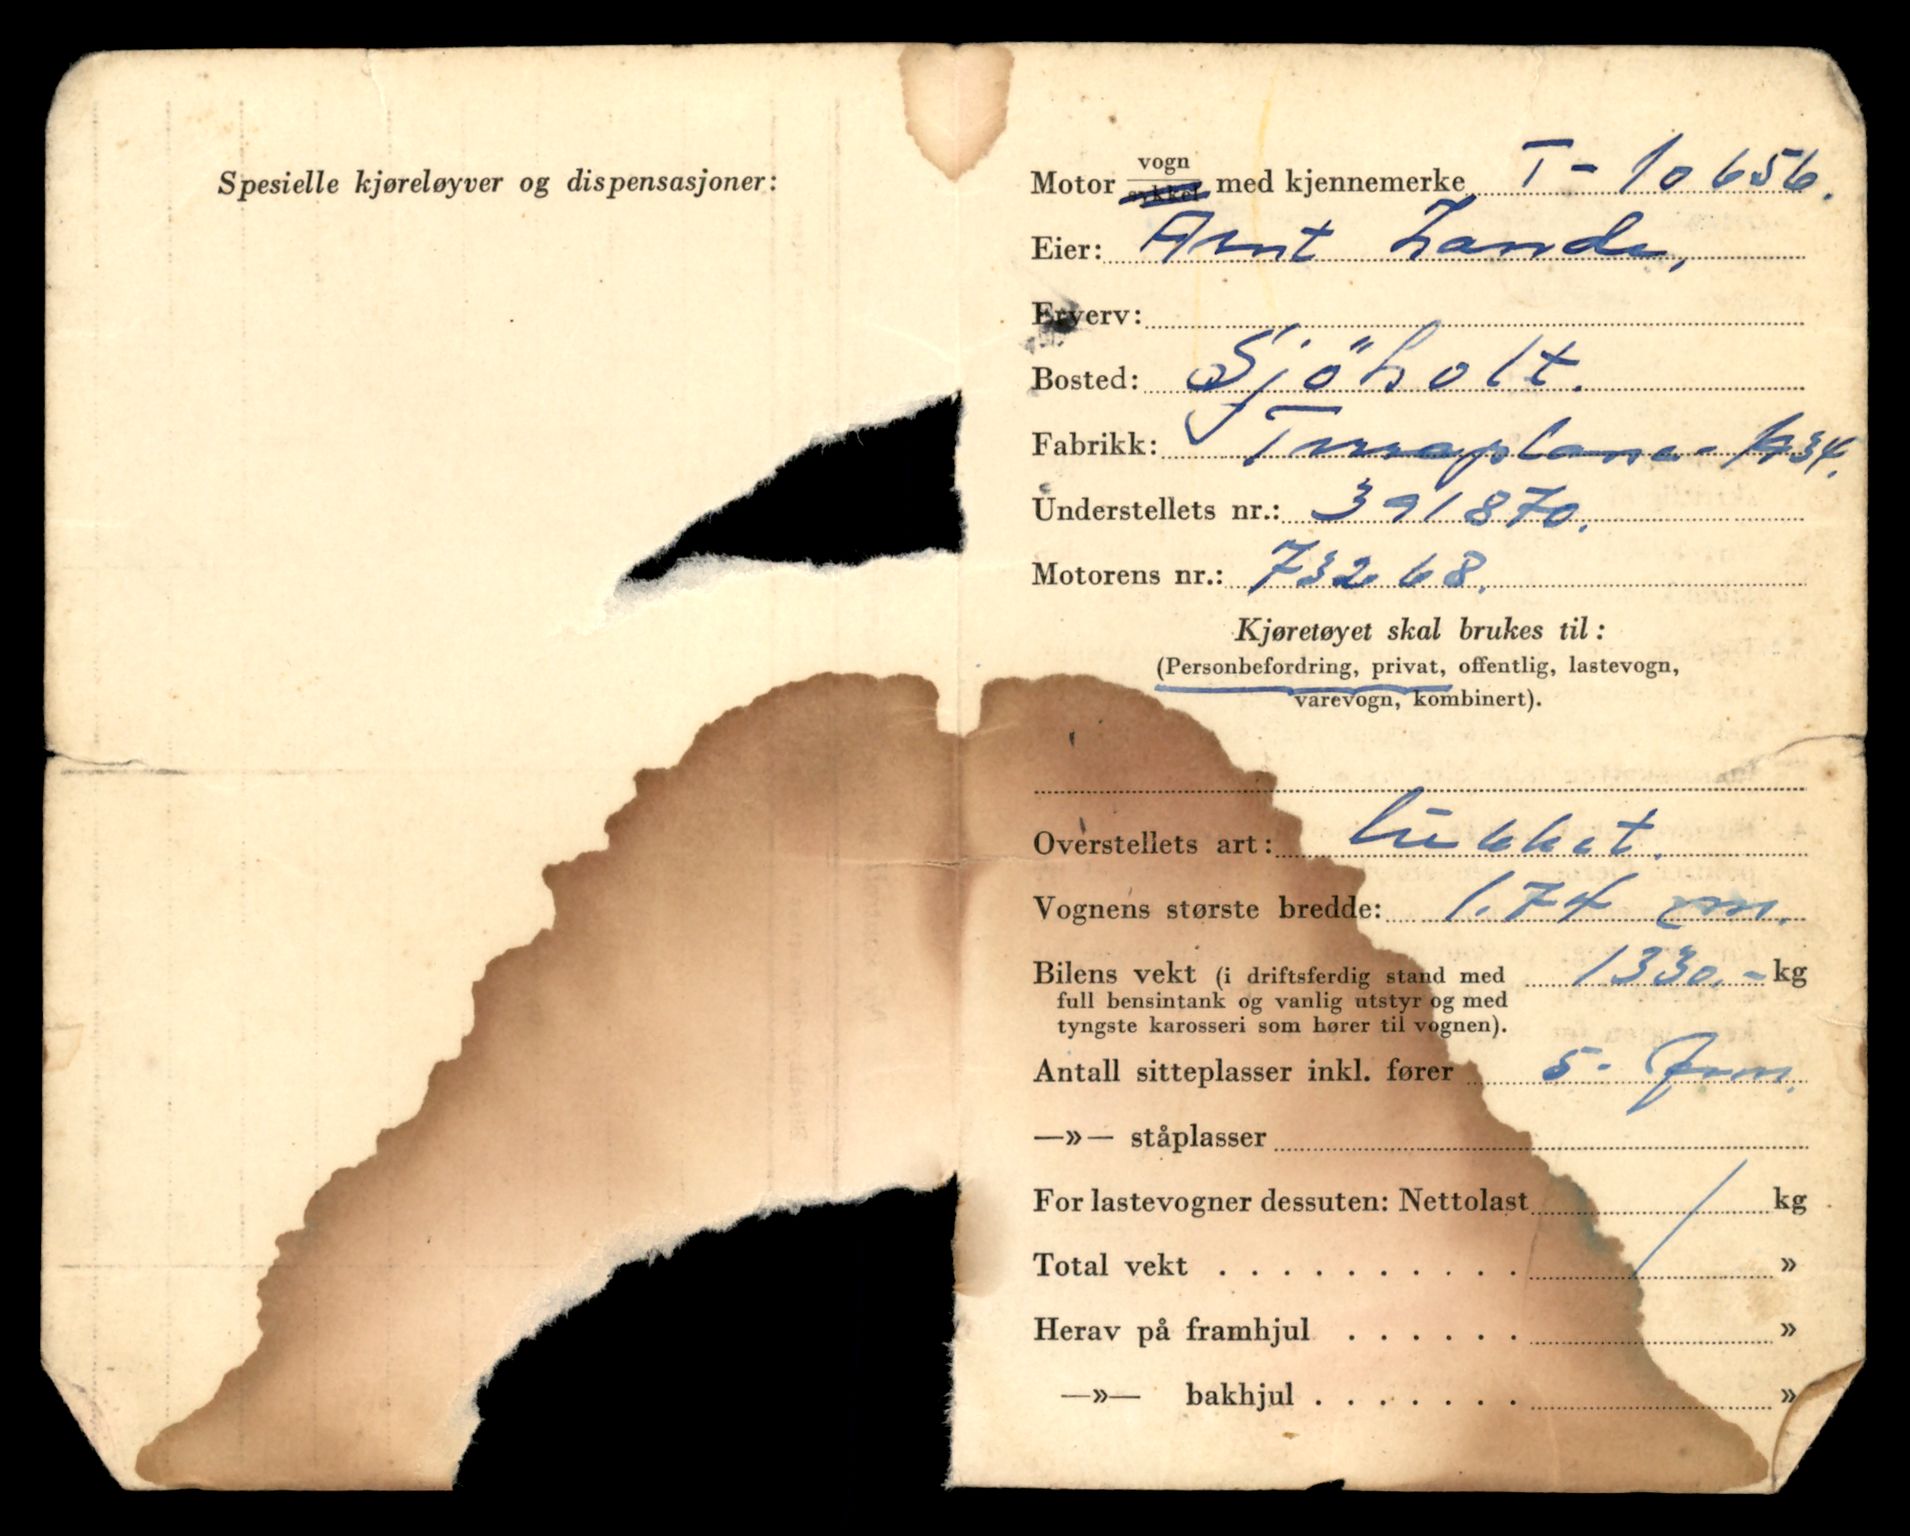 Spesielle kjøreløyver og dispensasjoner:
Motor vogn/sykkel med kjennemerke T-10656.
Eier: Arnt Lande,
Erverv:
Bosted: Sjöholt.
Fabrikk: Terraplane-1934.
Understellets nr.: 391870.
Motorens nr.: 73268.
Kjøretøyet skal brukes til:
(Personbefordring, privat, offentlig, lastevogn,
varevogn, kombinert).
Overstellets art: lukket.
Vognens største bredde: 1.74 cm.
Bilens vekt (i driftsferdig stand med 1330.- kg
full bensintank og vanlig utstyr og med
tyngste karosseri som hører til vognen).
Antall sitteplasser inkl. fører 5- fem.
—»— ståplasser
For lastevogner dessuten: Nettolast / kg
Total vekt . . . . . . . . . . »
Herav på framhjul . . . . . . »
—»— bakhjul . . . . . . . »